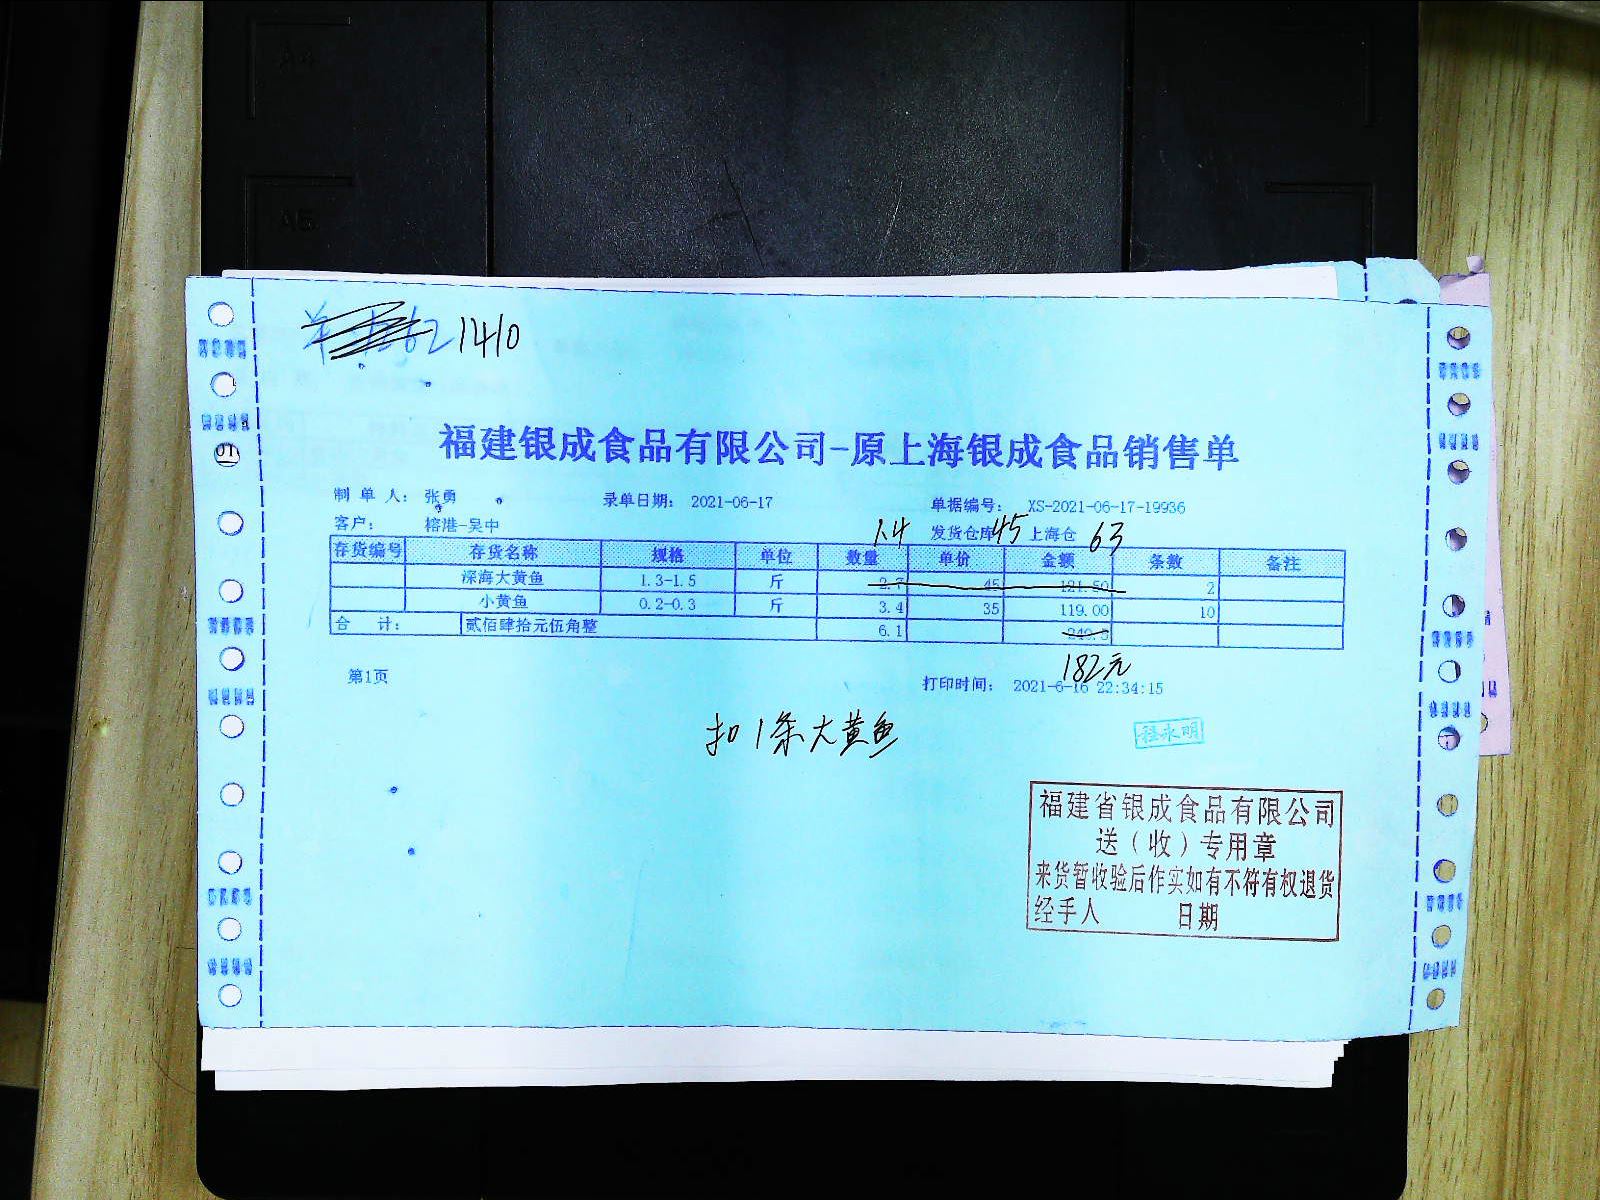 1410
福建银成食品有限公司-原上海银成食品销售单
制 单 人： 张勇 录单日期： 2021-06-17 单据编号： XS-2021-06-17-19936
客户： 榕港-吴中 发货仓库 上海仓
1.4 45 63
存货编号 存货名称 规格 单位 数量 单价 金额 条数 备注
深海大黄鱼 1.3-1.5 斤 2.7 45 121.50 2
小黄鱼 0.2-0.3 斤 3.4 35 119.00 10
合 计： 贰佰肆拾元伍角整 6.1 240.5
182元
第1页 打印时间： 2021-6-16 22:34:15
扣1条大黄鱼
程永明
福建省银成食品有限公司
送（收）专用章
来货暂收验后作实如有不符有权退货
经手人 日期
A5